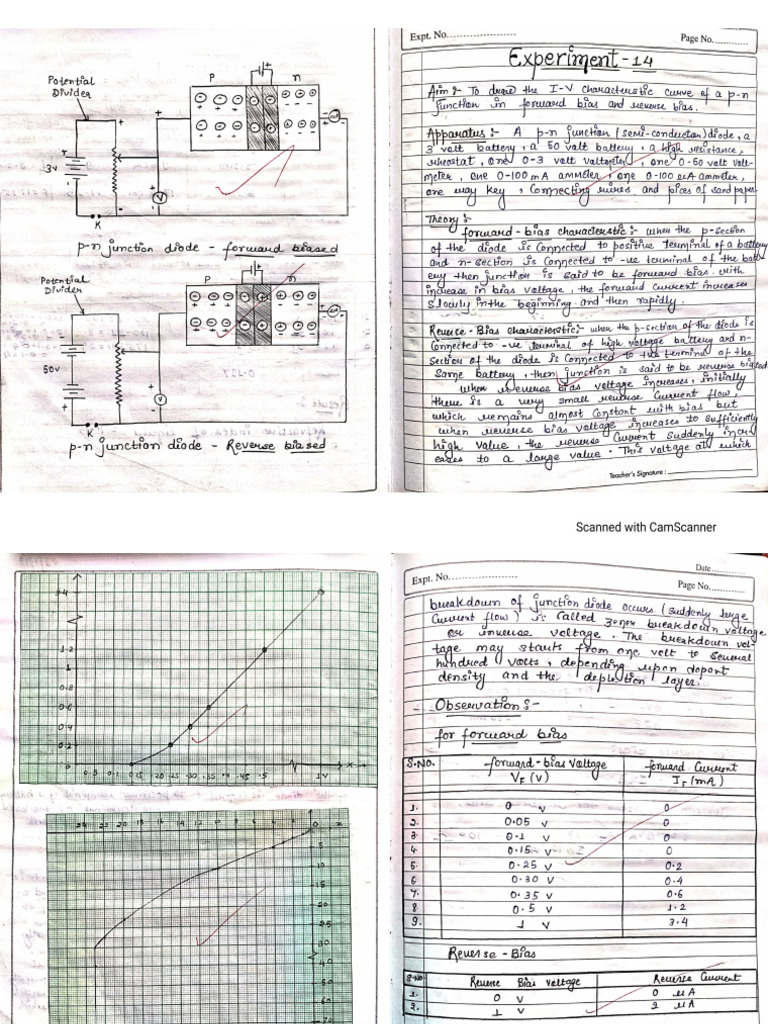 Potential
Divider
P
n
3v
K
V
p-n junction diode - forward biased
Potential
Divider
P
n
50v
K
V
p-n junction diode - Reverse biased
Expt. No.
Page No.
Experiment-14
Aim :- To draw the I-V characteristic curve of a p-n
junction in forward bias and reverse bias.
Apparatus :- A p-n junction (semi-conductor) diode, a
3 volt battery, a 50 volt battery, a high resistance,
rheostat, one 0-3 volt voltmeter, one 0-50 volt volt-
meter, one 0-100 mA ammeter, one 0-100 μA ammeter,
one way key, connecting wires and pices of sand paper
Theory :-
forward-bias characterstic :- when the p-section
of the diode is connected to positive terminal of a battery
and n-section is connected to -ve terminal of the batt
ery then junction is said to be forward bias. with
increase in bias voltage, the forward current increases
slowly in the beginning and then rapidly.
Reverse-Bias characterstic:- when the p-section of the diode is
connected to -ve terminal of high voltage battery and n-
section of the diode is connected to +ve terminal of the
same battery, then junction is said to be reverse biased
when reverse bias voltage increases, initially
there is a very small reverse current flow,
which remains almost constant with bias but
when reverse bias voltage increases to sufficiently
high value, the reverse current suddenly incre
eases to a large value. This voltage at which
Teacher's Signature :
Scanned with CamScanner
3.4
1.2
1
0.8
0.6
0.4
0.2
0.5 0.1 0.15 0.20 .25 .30 .35 .4 .45 .5 1V X
24 22 20 18 16 14 12 10 8 6 4 2 0 x
5
10
15
20
25
30
Date
Expt. No.
Page No.
breakdown of junction diode occurs (suddenly large
current flow) is called zener breakdown voltage
or inverse voltage. The breakdown vol-
tage may starts from one volt to several
hundred volts, depending upon dopant
density and the depletion layer.
Observation :-
for forward bias
S.NO. forward-bias Voltage VF (V) forward Current IF (mA)
1. 0 v 0
2. 0.05 v 0
3. 0.1 v 0
4. 0.15 v 0
5. 0.25 v 0.2
6. 0.30 v 0.4
7. 0.35 v 0.6
8. 0.5 v 1.2
9. 1 v 3.4
Reverse-Bias
S.NO. Reverse Bias voltage Reverse Current
1. 0 v 0 μA
2. 1 v 2 μA